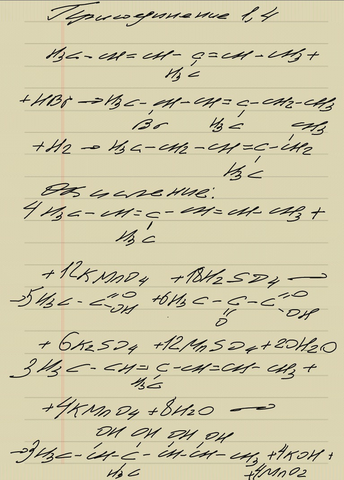 Присоединение 1,4
H3C - CH = CH - C = CH - CH3 +
H3C
+ HBr → H3C - CH - CH = C - CH2 - CH3
Br H3C CH3
+ H2 → H3C - CH2 - CH = C - CH2
H3C
Окисление:
4 H3C - CH = C - CH = CH - CH3 +
H3C
+ 12KMnO4 + 18H2SO4 →
→ 5H3C - C =O -OH + 6H3C - C - C =O -OH
O
+ 6K2SO4 + 12MnSO4 + 20H2O
3H3C - CH = C - CH = CH - CH3 +
H3C
+ 4KMnO4 + 8H2O →
OH OH OH OH
→ 3H3C - CH - C - CH - CH - CH3 + 4KOH +
H3C + 4MnO2